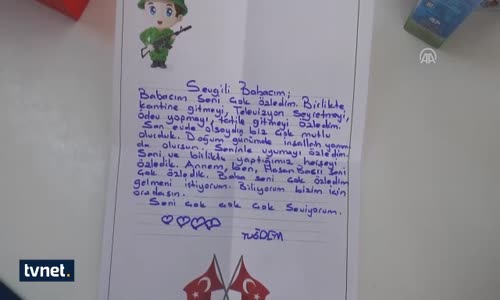 Sevgili Babacım;
Babacım Seni çok özledim. Birlikte
kantine gitmeyi, Televizyon Seyretmeyi,
ödev yapmayı, tatile gitmeyi özledim.
Sen evde olsaydın biz çok mutlu
olurduk. Doğum gününde inşallah yanım
da olursun. Seninle uyumayı özledim
Seni, ve birlikte yaptığımız herşeyi
özledik. Annem, ben, Hasan Basri seni
çok özledik. Baba seni çok özledim
gelmeni istiyorum. Biliyorum bizim için
oradasın.
Seni çok çok çok Seviyorum.
TUĞDEM
AA
tvnet.